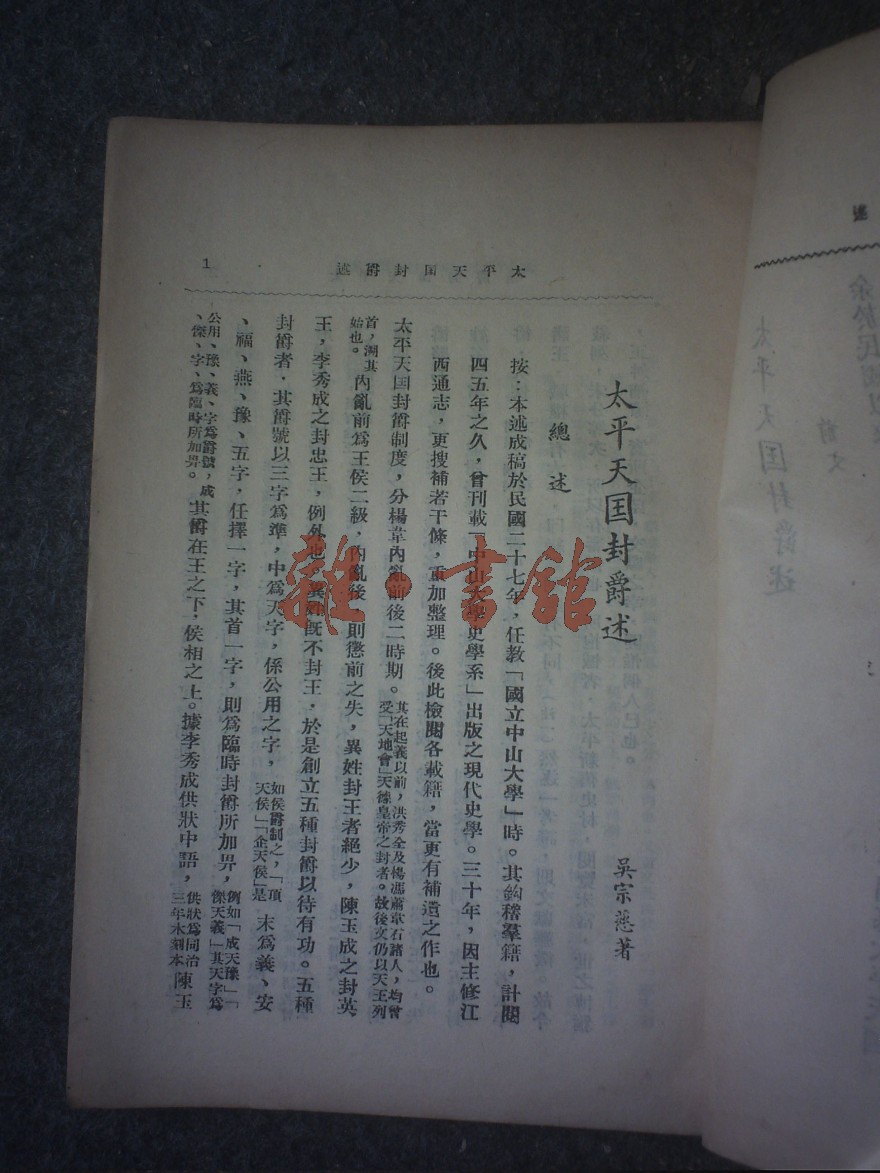 太平天囯封爵述
1
太平天囯封爵述
吳宗慈著
總述
按：本述成稿於民國二十七年，任教「國立中山大學」時。其鈎稽羣籍，計閱
四五年之久，曾刊載「中山大學史學系」出版之現代史學。三十年，因主修江
西通志，更搜補若干條，重加整理。後此檢閱各載籍，當更有補遺之作也。
太平天囯封爵制度，分楊韋內亂前後二時期。其在起義以前，洪秀全及楊馮蕭韋石諸人，均曾
受「天地會」天德皇帝之封者。故後文仍以天王列
首，溯其
始也。內亂前爲王侯二級，內亂後，則懲前之失，異姓封王者絕少，陳玉成之封英
王，李秀成之封忠王，例外也。異姓既不封王，於是創立五種封爵以待有功。五種
封爵者，其爵號以三字爲準，中爲天字，係公用之字，如侯爵制之，「頂
天侯」「企天侯」是末爲義、安
、福、燕、豫、五字，任擇一字，其首一字，則爲臨時封爵所加畀，例如「成天豫」「
傑天義」其天字爲
公用、豫、義、字爲爵號，成
、傑、字、爲臨時所加畀。其爵在王之下，侯相之上。據李秀成供狀中語，供狀爲同治
三年木刻本陳玉
雜·書館
述
太平天囯封爵述
前文